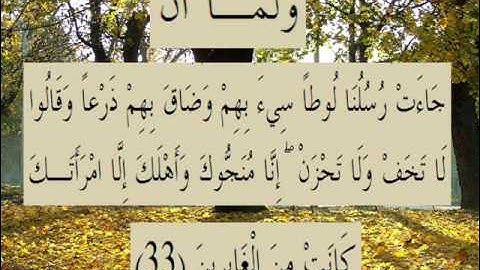 وَلَمَّا أَن
جَاءَتْ رُسُلُنَا لُوطاً سِيءَ بِهِمْ وَضَاقَ بِهِمْ ذَرْعاً وَقَالُوا
لَا تَخَفْ وَلَا تَحْزَنْ ۖ إِنَّا مُنَجُّوكَ وَأَهْلَكَ إِلَّا امْرَأَتَـــكَ
كَانَتْ مِنَ الْغَابِرِينَ (33)